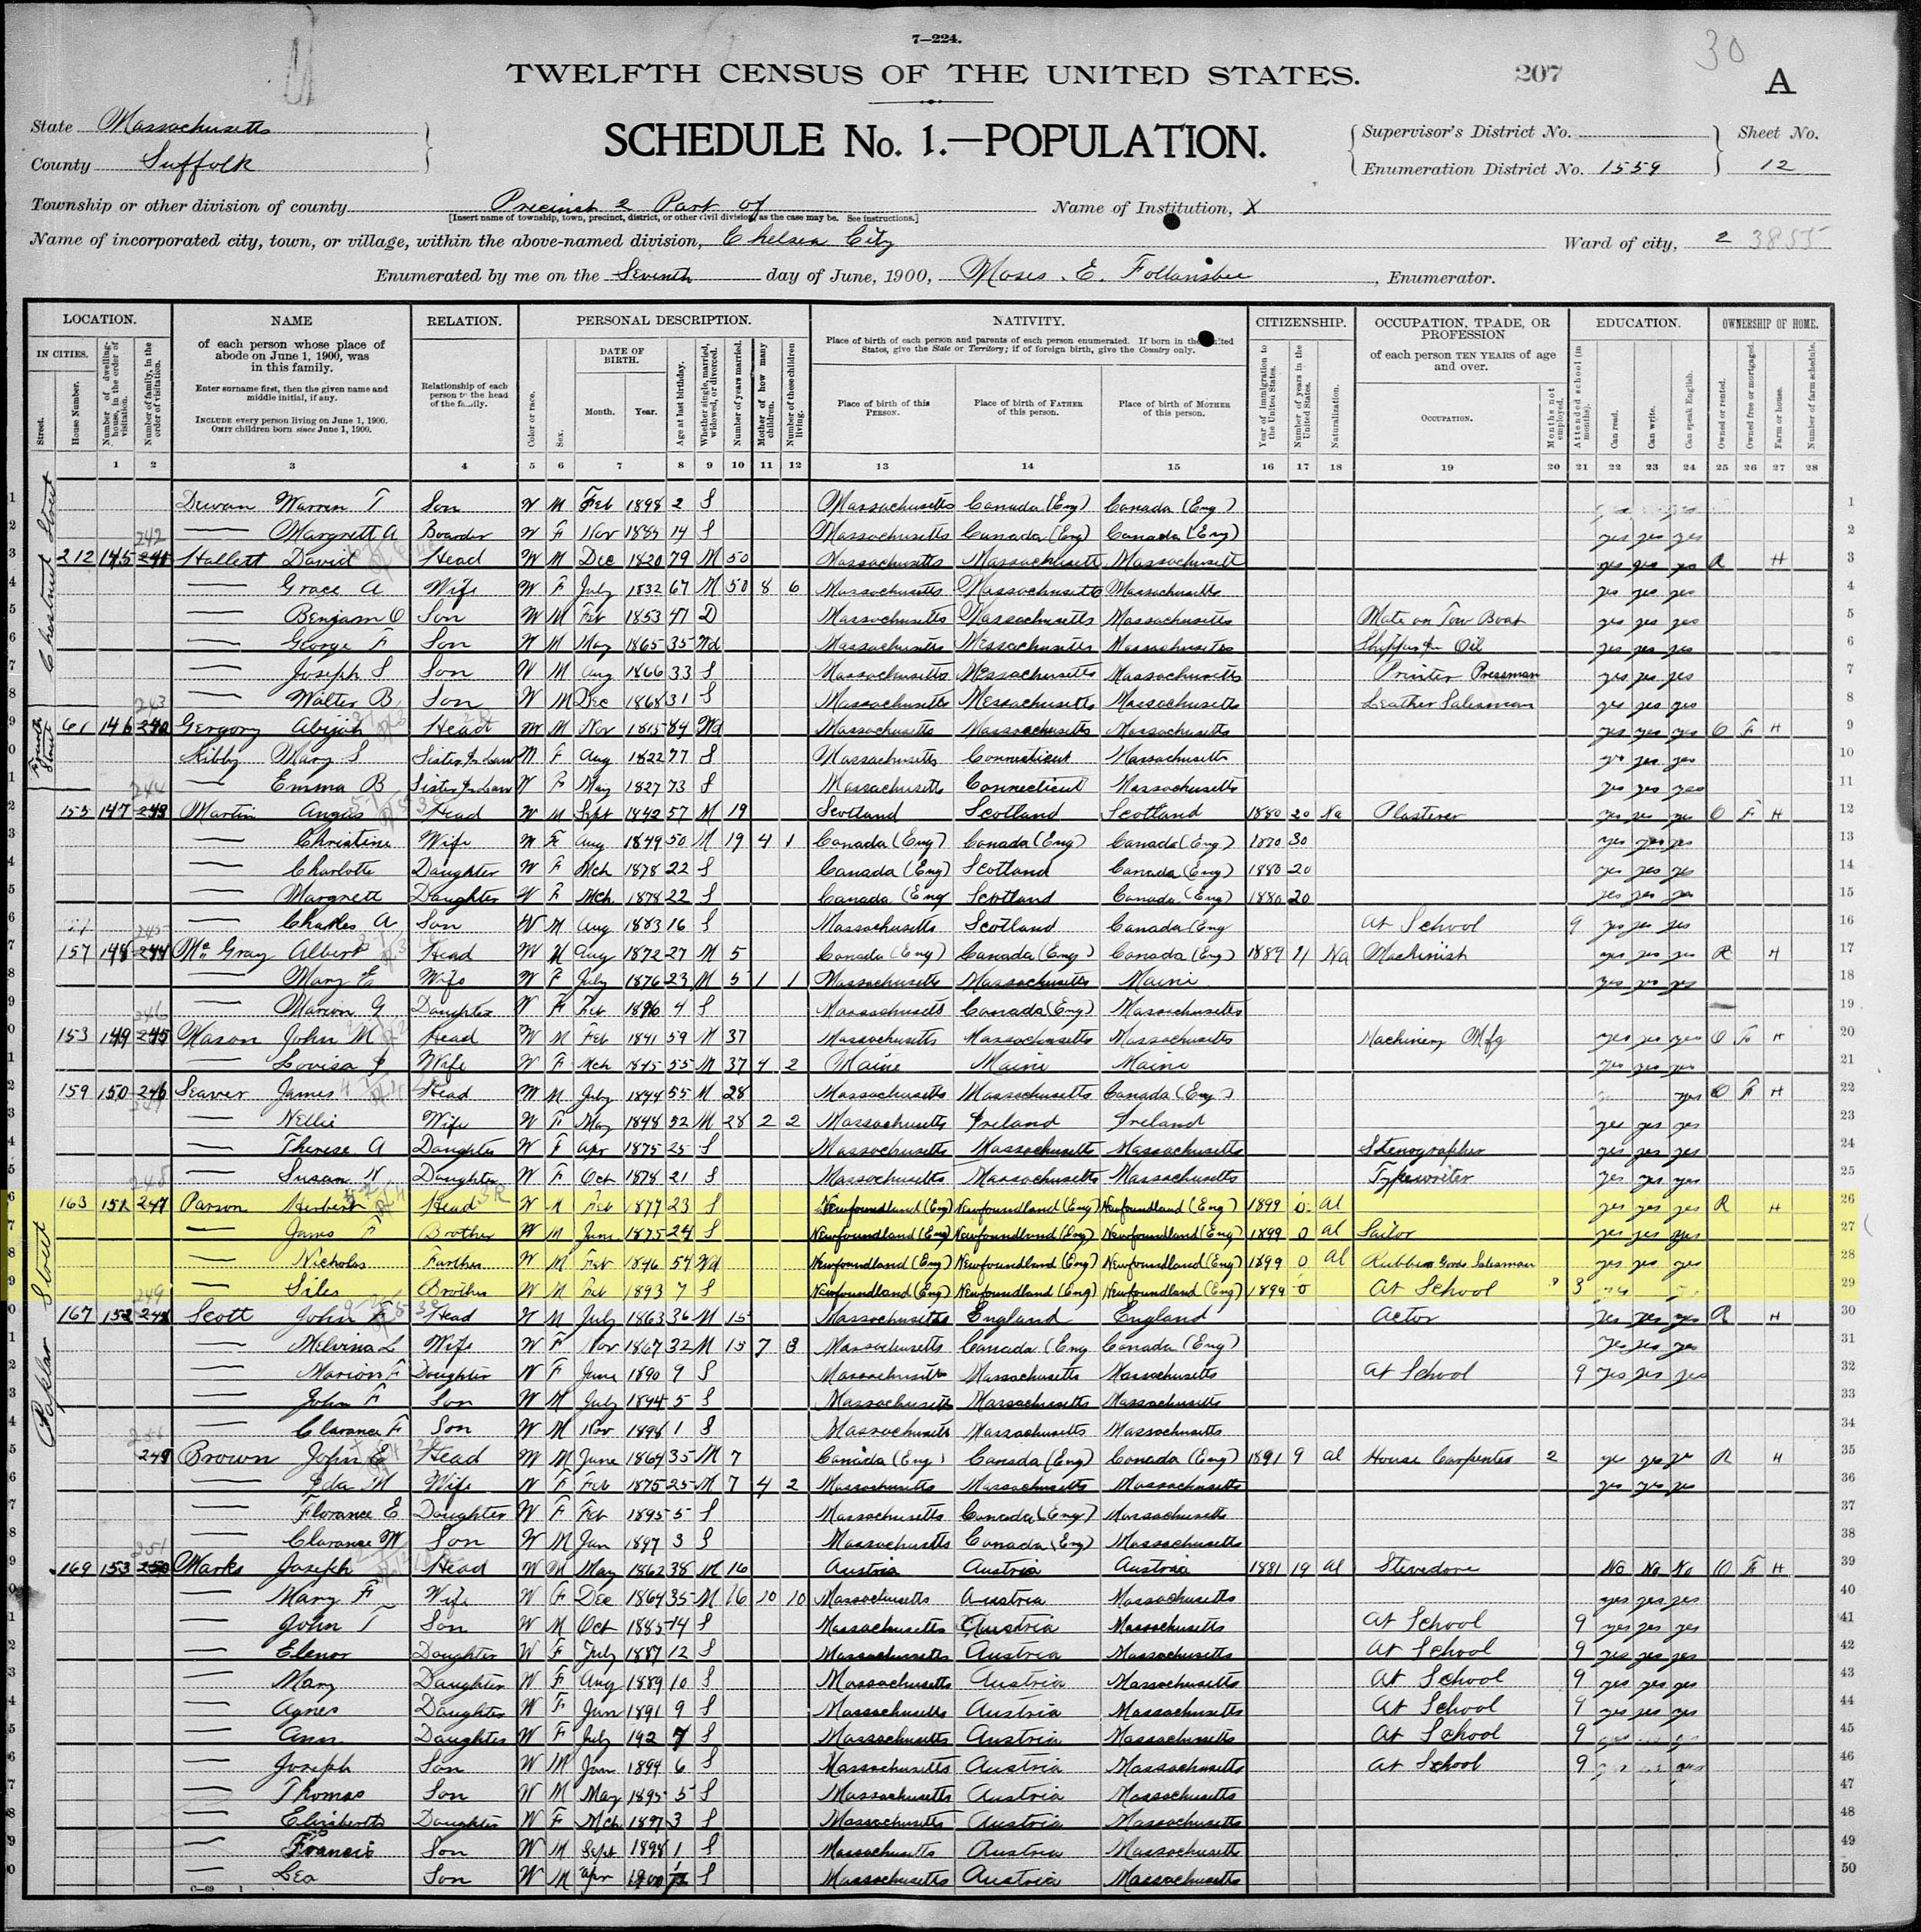 7—224.
30
TWELFTH CENSUS OF THE UNITED STATES.
207
A
State Massachusetts
County Suffolk
SCHEDULE No. 1.—POPULATION.
Supervisor's District No.
Enumeration District No. 1559
Sheet No.
12
Township or other division of county Precinct 2 Part of
[Insert name of township, town, precinct, district, or other civil division, as the case may be. See instructions.]
Name of Institution, X
Name of incorporated city, town, or village, within the above-named division, Chelsea City
Ward of city, 2 3855
Enumerated by me on the Seventh day of June, 1900, Moses E. Follansbee, Enumerator.
LOCATION. NAME RELATION. PERSONAL DESCRIPTION. NATIVITY. CITIZENSHIP. OCCUPATION, TRADE, OR PROFESSION EDUCATION. OWNERSHIP OF HOME.
IN CITIES. Street. House Number. Number of dwelling-house, in the order of visitation. Number of family, in the order of visitation.
of each person whose place of abode on June 1, 1900, was in this family.
Enter surname first, then the given name and middle initial, if any.
INCLUDE every person living on June 1, 1900.
OMIT children born since June 1, 1900.
Relationship of each person to the head of the family.
Color or race. Sex. DATE OF BIRTH. Month. Year. Age at last birthday. Whether single, married, widowed, or divorced. Number of years married. Mother of how many children. Number of these children living.
Place of birth of each person and parents of each person enumerated. If born in the United States, give the State or Territory; if of foreign birth, give the Country only.
Place of birth of this PERSON. Place of birth of FATHER of this person. Place of birth of MOTHER of this person.
Year of immigration to the United States. Number of years in the United States. Naturalization.
of each person TEN YEARS of age and over.
OCCUPATION. Months not employed.
Attended school (in months). Can read. Can write. Can speak English.
Owned or rented. Owned free or mortgaged. Farm or house. Number of farm schedule.
1 2 3 4 5 6 7 8 9 10 11 12 13 14 15 16 17 18 19 20 21 22 23 24 25 26 27 28
Chestnut Street
Warren T Son W M Feb 1898 2 S Massachusetts Canada (Eng) Canada (Eng) 1
Margrett A Boarder W F Nov 1885 14 S Massachusetts Canada (Eng) Canada (Eng) yes yes yes 2
212 145 241 Hallett David Head W M Dec 1820 79 M 50 Massachusetts Massachusetts Massachusetts yes yes yes R H 3
Grace A Wife W F July 1832 67 M 50 8 6 Massachusetts Massachusetts Massachusetts yes yes yes 4
Benjam O Son W M Feb 1853 47 D Massachusetts Massachusetts Massachusetts Mate on Tow Boat yes yes yes 5
George F Son W M May 1865 35 Wd Massachusetts Massachusetts Massachusetts Oil yes yes yes 6
Joseph S Son W M Aug 1866 33 S Massachusetts Massachusetts Massachusetts Printer Pressman yes yes yes 7
Walter B Son W M Dec 1868 31 S Massachusetts Massachusetts Massachusetts Leather Salesman yes yes yes 8
Fourth Street
61 146 Gergory Abijah Head W M Nov 1815 84 Wd Massachusetts Massachusetts Massachusetts yes yes yes O F H 9
Kibby Mary S Sister In Law W F Aug 1822 77 S Massachusetts Connecticut Massachusetts yes yes yes 10
Emma B Sister In Law W F May 1827 73 S Massachusetts Connecticut Massachusetts yes yes yes 11
155 147 243 Martin Angus Head W M Sept 1842 57 M 19 Scotland Scotland Scotland 1880 20 Na Plasterer yes yes yes O F H 12
Christine Wife W F Aug 1849 50 M 19 4 1 Canada (Eng) Canada (Eng) Canada (Eng) 1870 30 yes yes yes 13
Charlotte Daughter W F Mch 1878 22 S Canada (Eng) Scotland Canada (Eng) 1880 20 yes yes yes 14
Margrett Daughter W F Mch 1878 22 S Canada (Eng Scotland Canada (Eng) 1880 20 yes yes yes 15
Charles A Son W M Aug 1883 16 S Massachusetts Scotland Canada (Eng At School 9 yes yes yes 16
157 148 244 Mc Gray Albert Head W M Aug 1872 27 M 5 Canada (Eng) Canada (Eng) Canada (Eng) 1889 11 Na Machinist yes yes yes R H 17
Mary E Wife W F July 1876 23 M 5 1 1 Massachusetts Massachusetts Maine yes yes yes 18
Marion G Daughter W F Feb 1896 4 S Massachusetts Canada (Eng) Massachusetts 19
153 149 245 Mason John M Head W M Feb 1841 59 M 37 Massachusetts Massachusetts Massachusetts Machinery Mfg yes yes yes O F H 20
Lovisa J Wife W F Mch 1845 55 M 37 4 2 Maine Maine Maine yes yes yes 21
159 150 246 Seaver James Head W M July 1844 55 M 28 Massachusetts Massachusetts Canada (Eng) yes O F H 22
Nellie Wife W F May 1848 52 M 28 2 2 Massachusetts Ireland Ireland yes yes yes 23
Therese A Daughter W F Apr 1875 25 S Massachusetts Massachusetts Massachusetts Stenographer yes yes yes 24
Susan N Daughter W F Oct 1878 21 S Massachusetts Massachusetts Massachusetts Typewriter yes yes yes 25
Poplar Street
163 151 247 Parson Herbert Head W M Feb 1877 23 S Newfoundland (Eng) Newfoundland (Eng) Newfoundland (Eng) 1899 0 al yes yes yes R H 26
James F Brother W M June 1875 24 S Newfoundland (Eng) Newfoundland (Eng) Newfoundland (Eng) 1899 0 al Sailor yes yes yes 27
Nicholas Farther W M Feb 1846 54 Wd Newfoundland (Eng) Newfoundland (Eng) Newfoundland (Eng) 1899 0 al Rubber Goods Salesman yes yes yes 28
Siles Brother W M Feb 1893 7 S Newfoundland (Eng) Newfoundland (Eng) Newfoundland (Eng) 1899 0 At School 3 yes 29
167 152 248 Scott John F Head W M July 1863 36 M 15 Massachusetts England England Actor yes yes yes R H 30
Melvina L Wife W F Nov 1867 32 M 15 7 3 Massachusetts Canada (Eng Canada (Eng) yes yes yes 31
Marion F Daughter W F June 1890 9 S Massachusetts Massachusetts Massachusetts At School 9 yes yes yes 32
John F Son W M July 1894 5 S Massachusetts Massachusetts Massachusetts 33
Clarance F Son W M Nov 1898 1 S Massachusetts Massachusetts Massachusetts 34
249 Brown John E Head W M June 1864 35 M 7 Canada (Eng) Canada (Eng) Canada (Eng) 1891 9 al House Carpenter 2 yes yes yes R H 35
Ida M Wife W F Feb 1875 25 M 7 4 2 Massachusetts Massachusetts Massachusetts yes yes yes 36
Florance E Daughter W F Feb 1895 5 S Massachusetts Canada (Eng) Massachusetts 37
Clarance W Son W M Jan 1897 3 S Massachusetts Canada (Eng) Massachusetts 38
169 153 250 Marks Joseph Head W M May 1862 38 M 16 Austria Austria Austria 1881 19 al Stevedore No No No O F H 39
Mary F Wife W F Dec 1864 35 M 16 10 10 Massachusetts Austria Massachusetts yes yes yes 40
John T Son W M Oct 1885 14 S Massachusetts Austria Massachusetts At School 9 yes yes yes 41
Elenor Daughter W F July 1887 12 S Massachusetts Austria Massachusetts At School 9 yes yes yes 42
Mary Daughter W F Aug 1889 10 S Massachusetts Austria Massachusetts At School 9 yes yes yes 43
Agnes Daughter W F Jan 1891 9 S Massachusetts Austria Massachusetts At School 9 yes yes yes 44
Ann Daughter W F July 192 7 S Massachusetts Austria Massachusetts At School 9 45
Joseph Son W M Jan 1894 6 S Massachusetts Austria Massachusetts At School 9 46
Thomas Son W M May 1895 5 S Massachusetts Austria Massachusetts 47
Elizabeth Daughter W F Mch 1897 3 S Massachusetts Austria Massachusetts 48
Francis Son W M Sept 1898 1 S Massachusetts Austria Massachusetts 49
Leo Son W M Apr 1900 S Massachusetts Austria Massachusetts 50